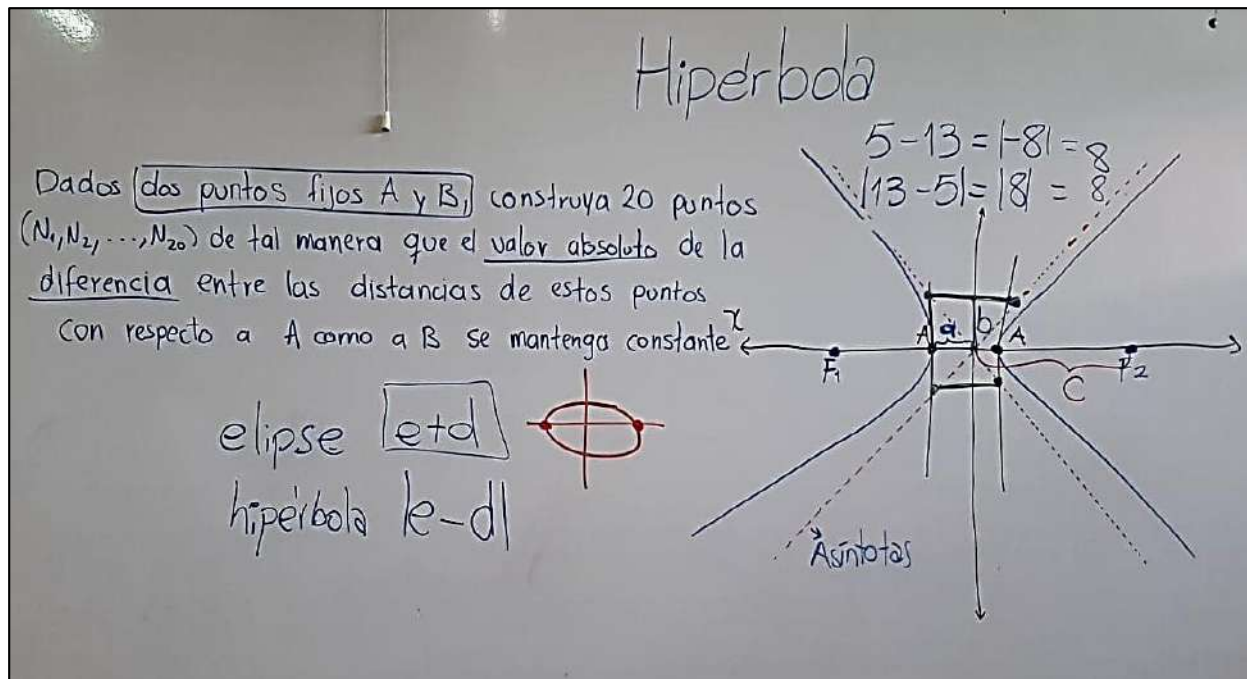 Hipérbola
5-13=|-8|=8
|13-5|=|8| = 8
Dados dos puntos fijos A y B, construya 20 puntos
(N₁,N₂,...,N₂₀) de tal manera que el valor absoluto de la
diferencia entre las distancias de estos puntos
con respecto a A como a B se mantenga constante
x
A a b A
F₁ C F₂
elipse e+d
hipérbola |e-d|
Asíntotas